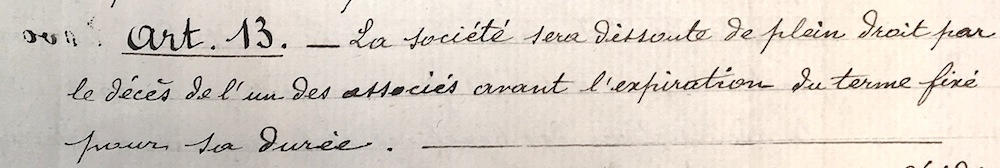 Art. 13. — La société sera dissoute de plein droit par
le décès de l'un des associés avant l'expiration du terme fixé
pour sa durée. —